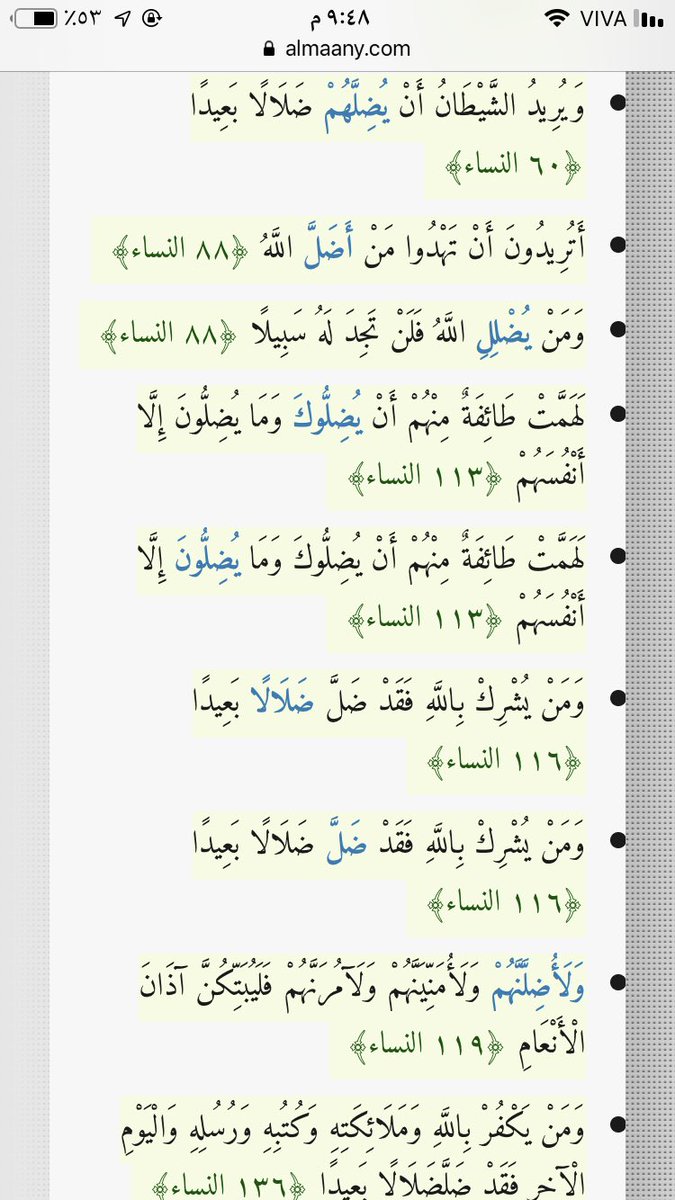 ٪٥٣ ٩:٤٨ م VIVA
almaany.com
وَيُرِيدُ الشَّيْطَانُ أَنْ يُضِلَّهُمْ ضَلَالًا بَعِيدًا
﴿٦٠ النساء﴾
أَتُرِيدُونَ أَنْ تَهْدُوا مَنْ أَضَلَّ اللَّهُ ﴿٨٨ النساء﴾
وَمَنْ يُضْلِلِ اللَّهُ فَلَنْ تَجِدَ لَهُ سَبِيلًا ﴿٨٨ النساء﴾
لَهَمَّتْ طَائِفَةٌ مِنْهُمْ أَنْ يُضِلُّوكَ وَمَا يُضِلُّونَ إِلَّا
أَنْفُسَهُمْ ﴿١١٣ النساء﴾
لَهَمَّتْ طَائِفَةٌ مِنْهُمْ أَنْ يُضِلُّوكَ وَمَا يُضِلُّونَ إِلَّا
أَنْفُسَهُمْ ﴿١١٣ النساء﴾
وَمَنْ يُشْرِكْ بِاللَّهِ فَقَدْ ضَلَّ ضَلَالًا بَعِيدًا
﴿١١٦ النساء﴾
وَمَنْ يُشْرِكْ بِاللَّهِ فَقَدْ ضَلَّ ضَلَالًا بَعِيدًا
﴿١١٦ النساء﴾
وَلَأُضِلَّنَّهُمْ وَلَأُمَنِّيَنَّهُمْ وَلَآمُرَنَّهُمْ فَلَيُبَتِّكُنَّ آذَانَ
الْأَنْعَامِ ﴿١١٩ النساء﴾
وَمَنْ يَكْفُرْ بِاللَّهِ وَمَلَائِكَتِهِ وَكُتُبِهِ وَرُسُلِهِ وَالْيَوْمِ
الْآخِرِ فَقَدْ ضَلَّضَلَالًا بَعِيدًا ﴿١٣٦ النساء﴾